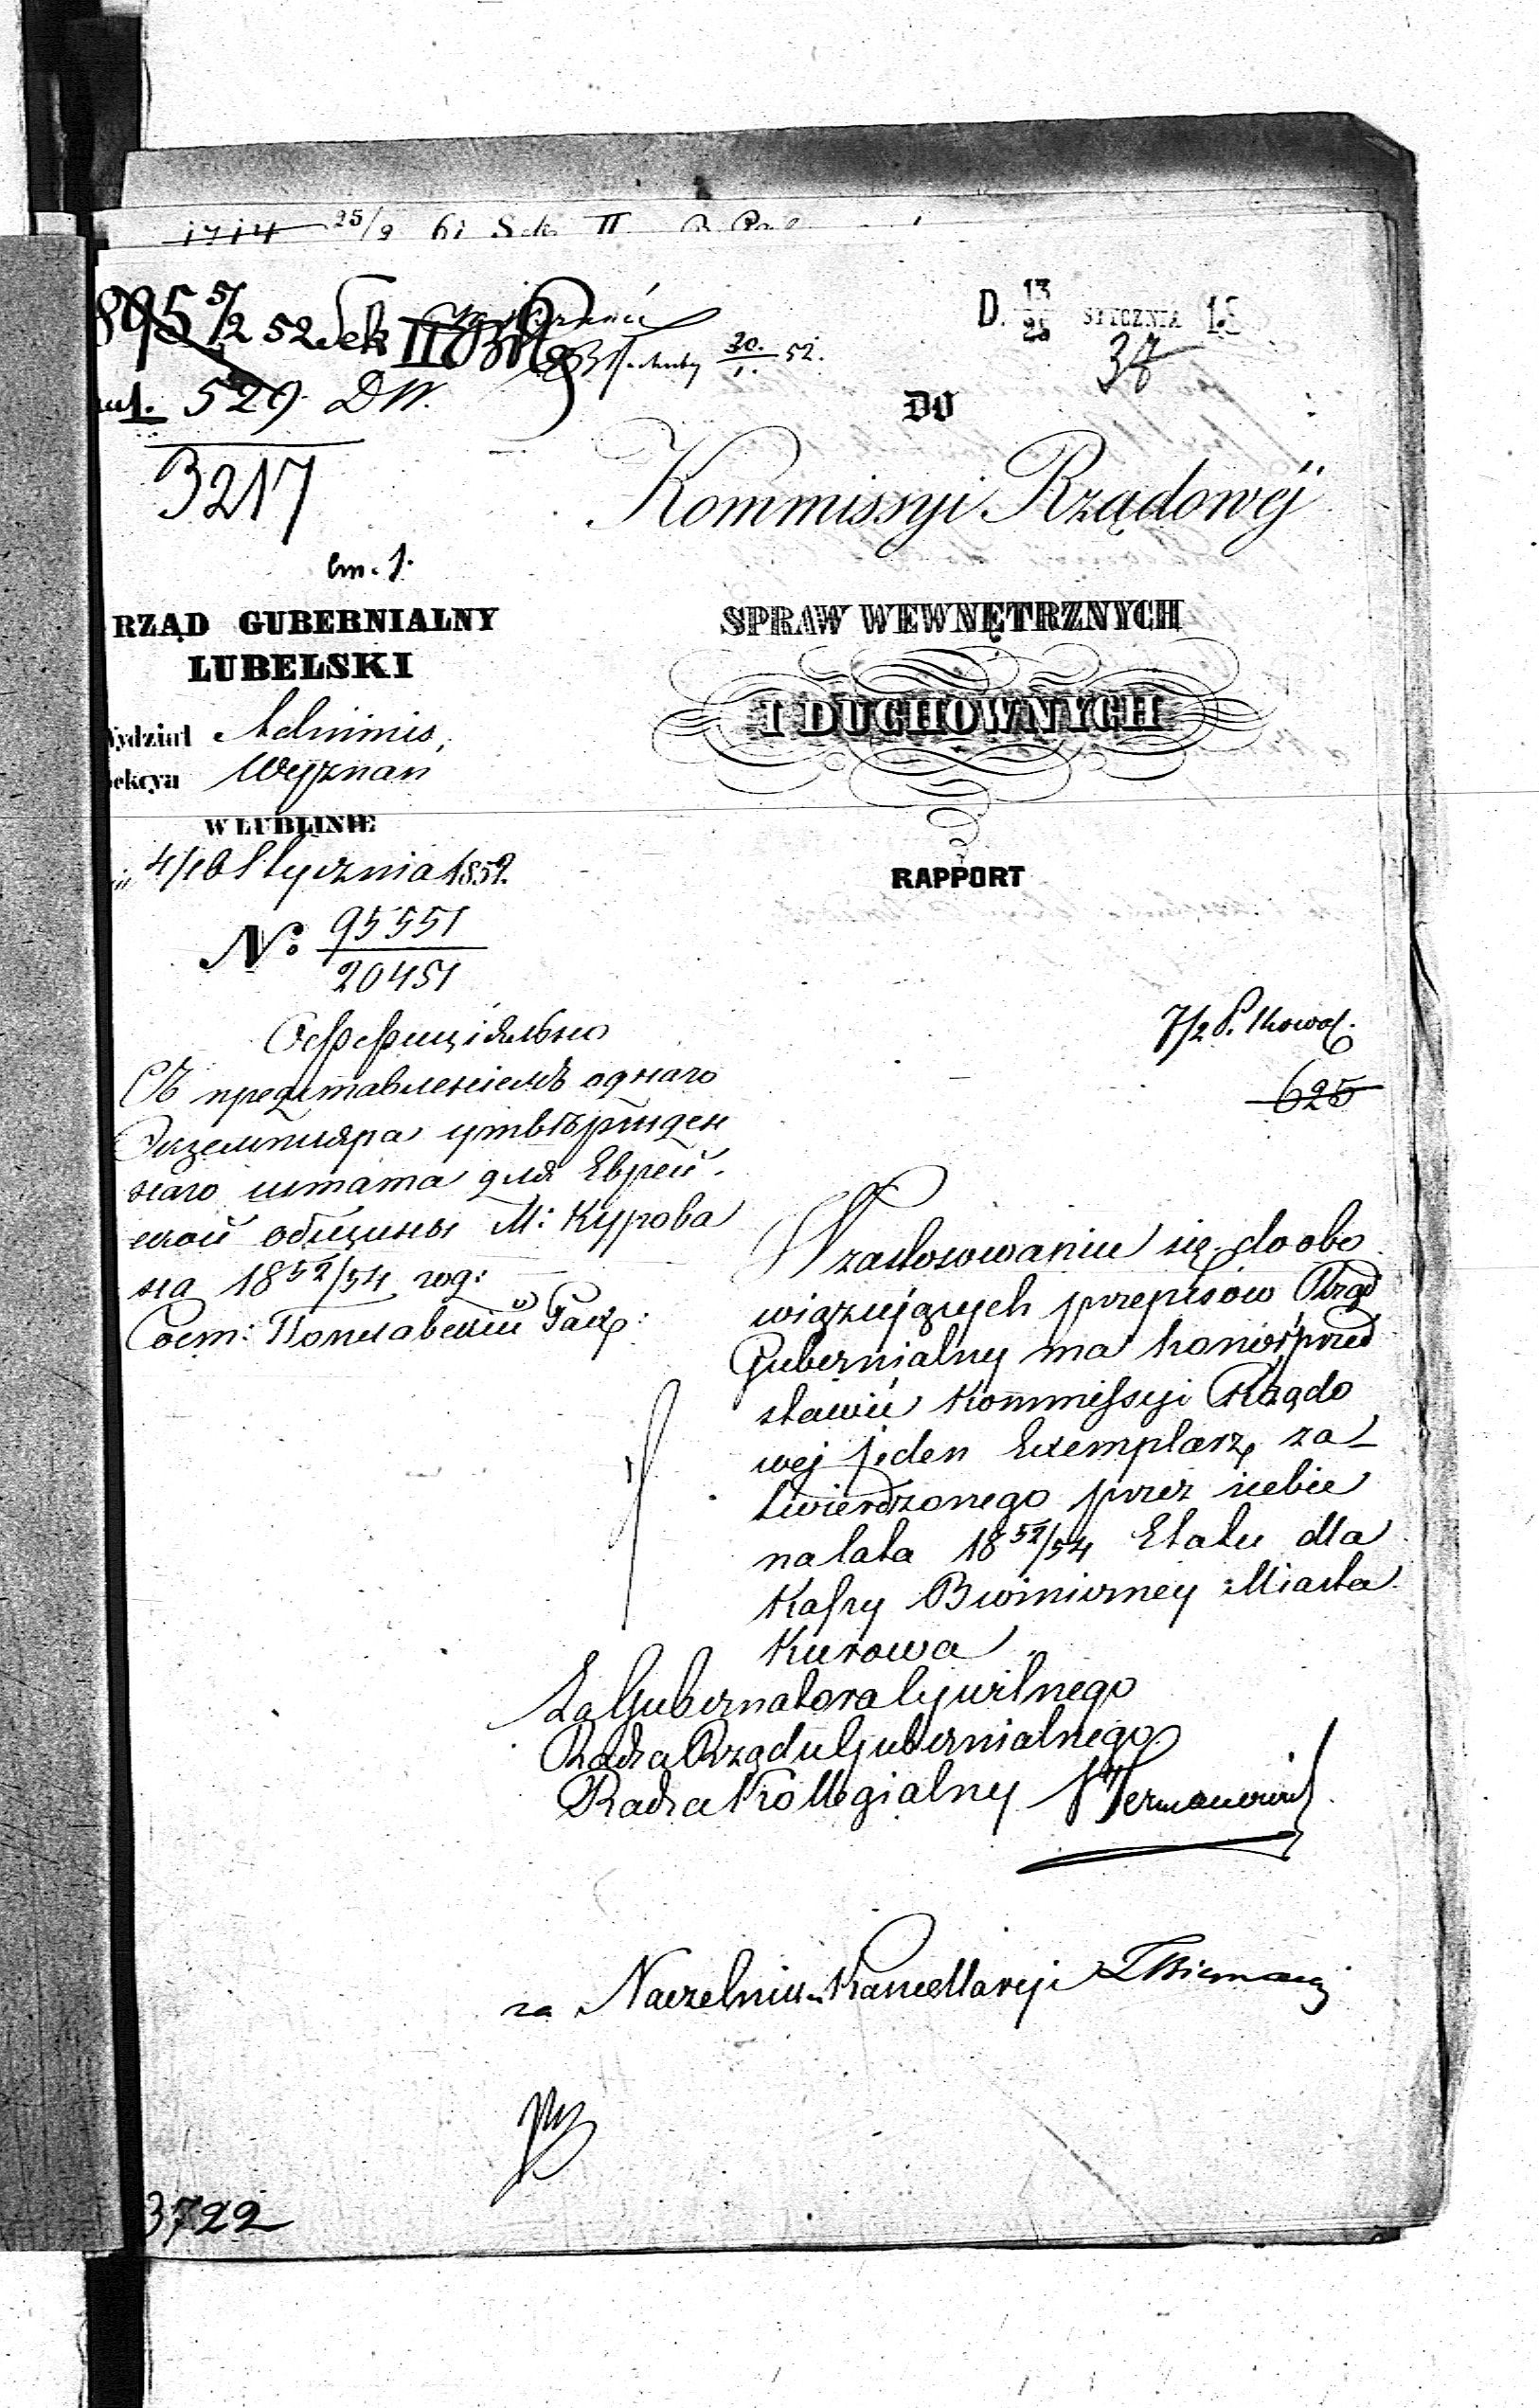 1714 25/9 61 Sek II
895 5/2 52 Sek II
529 DW.
3217
D. 13/25 STYCZNIA 18
37
30./1. 52.
DO
Kommissyi Rządowéj
SPRAW WEWNĘTRZNYCH
I DUCHOWNYCH
RAPPORT
lm. 1.
RZĄD GUBERNIALNY
LUBELSKI
Wydział Adminis,
Sekcya Wyznań
W LUBLINIE
4/16 Stycznia 1852.
N: 95551/20451
Съ представленіемъ одного
Экземпляра утвержден
наго штата для Еврей-
ской общины М: Курова
на 18 52/54 год:
7/2 P. Kowal.
625
W zastosowaniu się do obo
wiązujących przepisów Rząd
Gubernialny ma honor przed
stawić Kommissyi Rządo
wej jeden Exemplarz za-
twierdzonego przez siebie
na lata 18 52/54 Etatu dla
Kassy Bużniczney Miasta
Kurowa
Za Gubernatora Cywilnego
Radca Rządu Gubernialnego
Radca Kollegialny
za Naczelnika Kancellaryi
3722